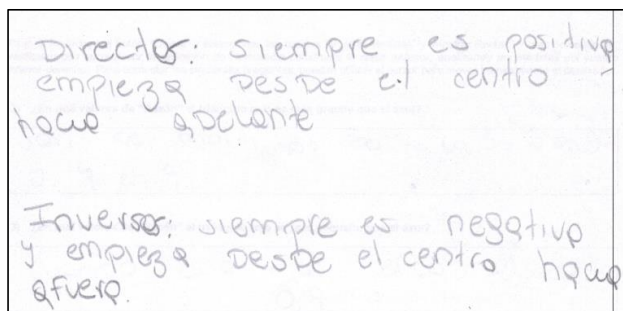 Directos: siempre es positiva y
empieza DESDE el centro
hacia aDelante
Inversos: siempre es negativa
y empieza DESDE el centro hacia
afuera.